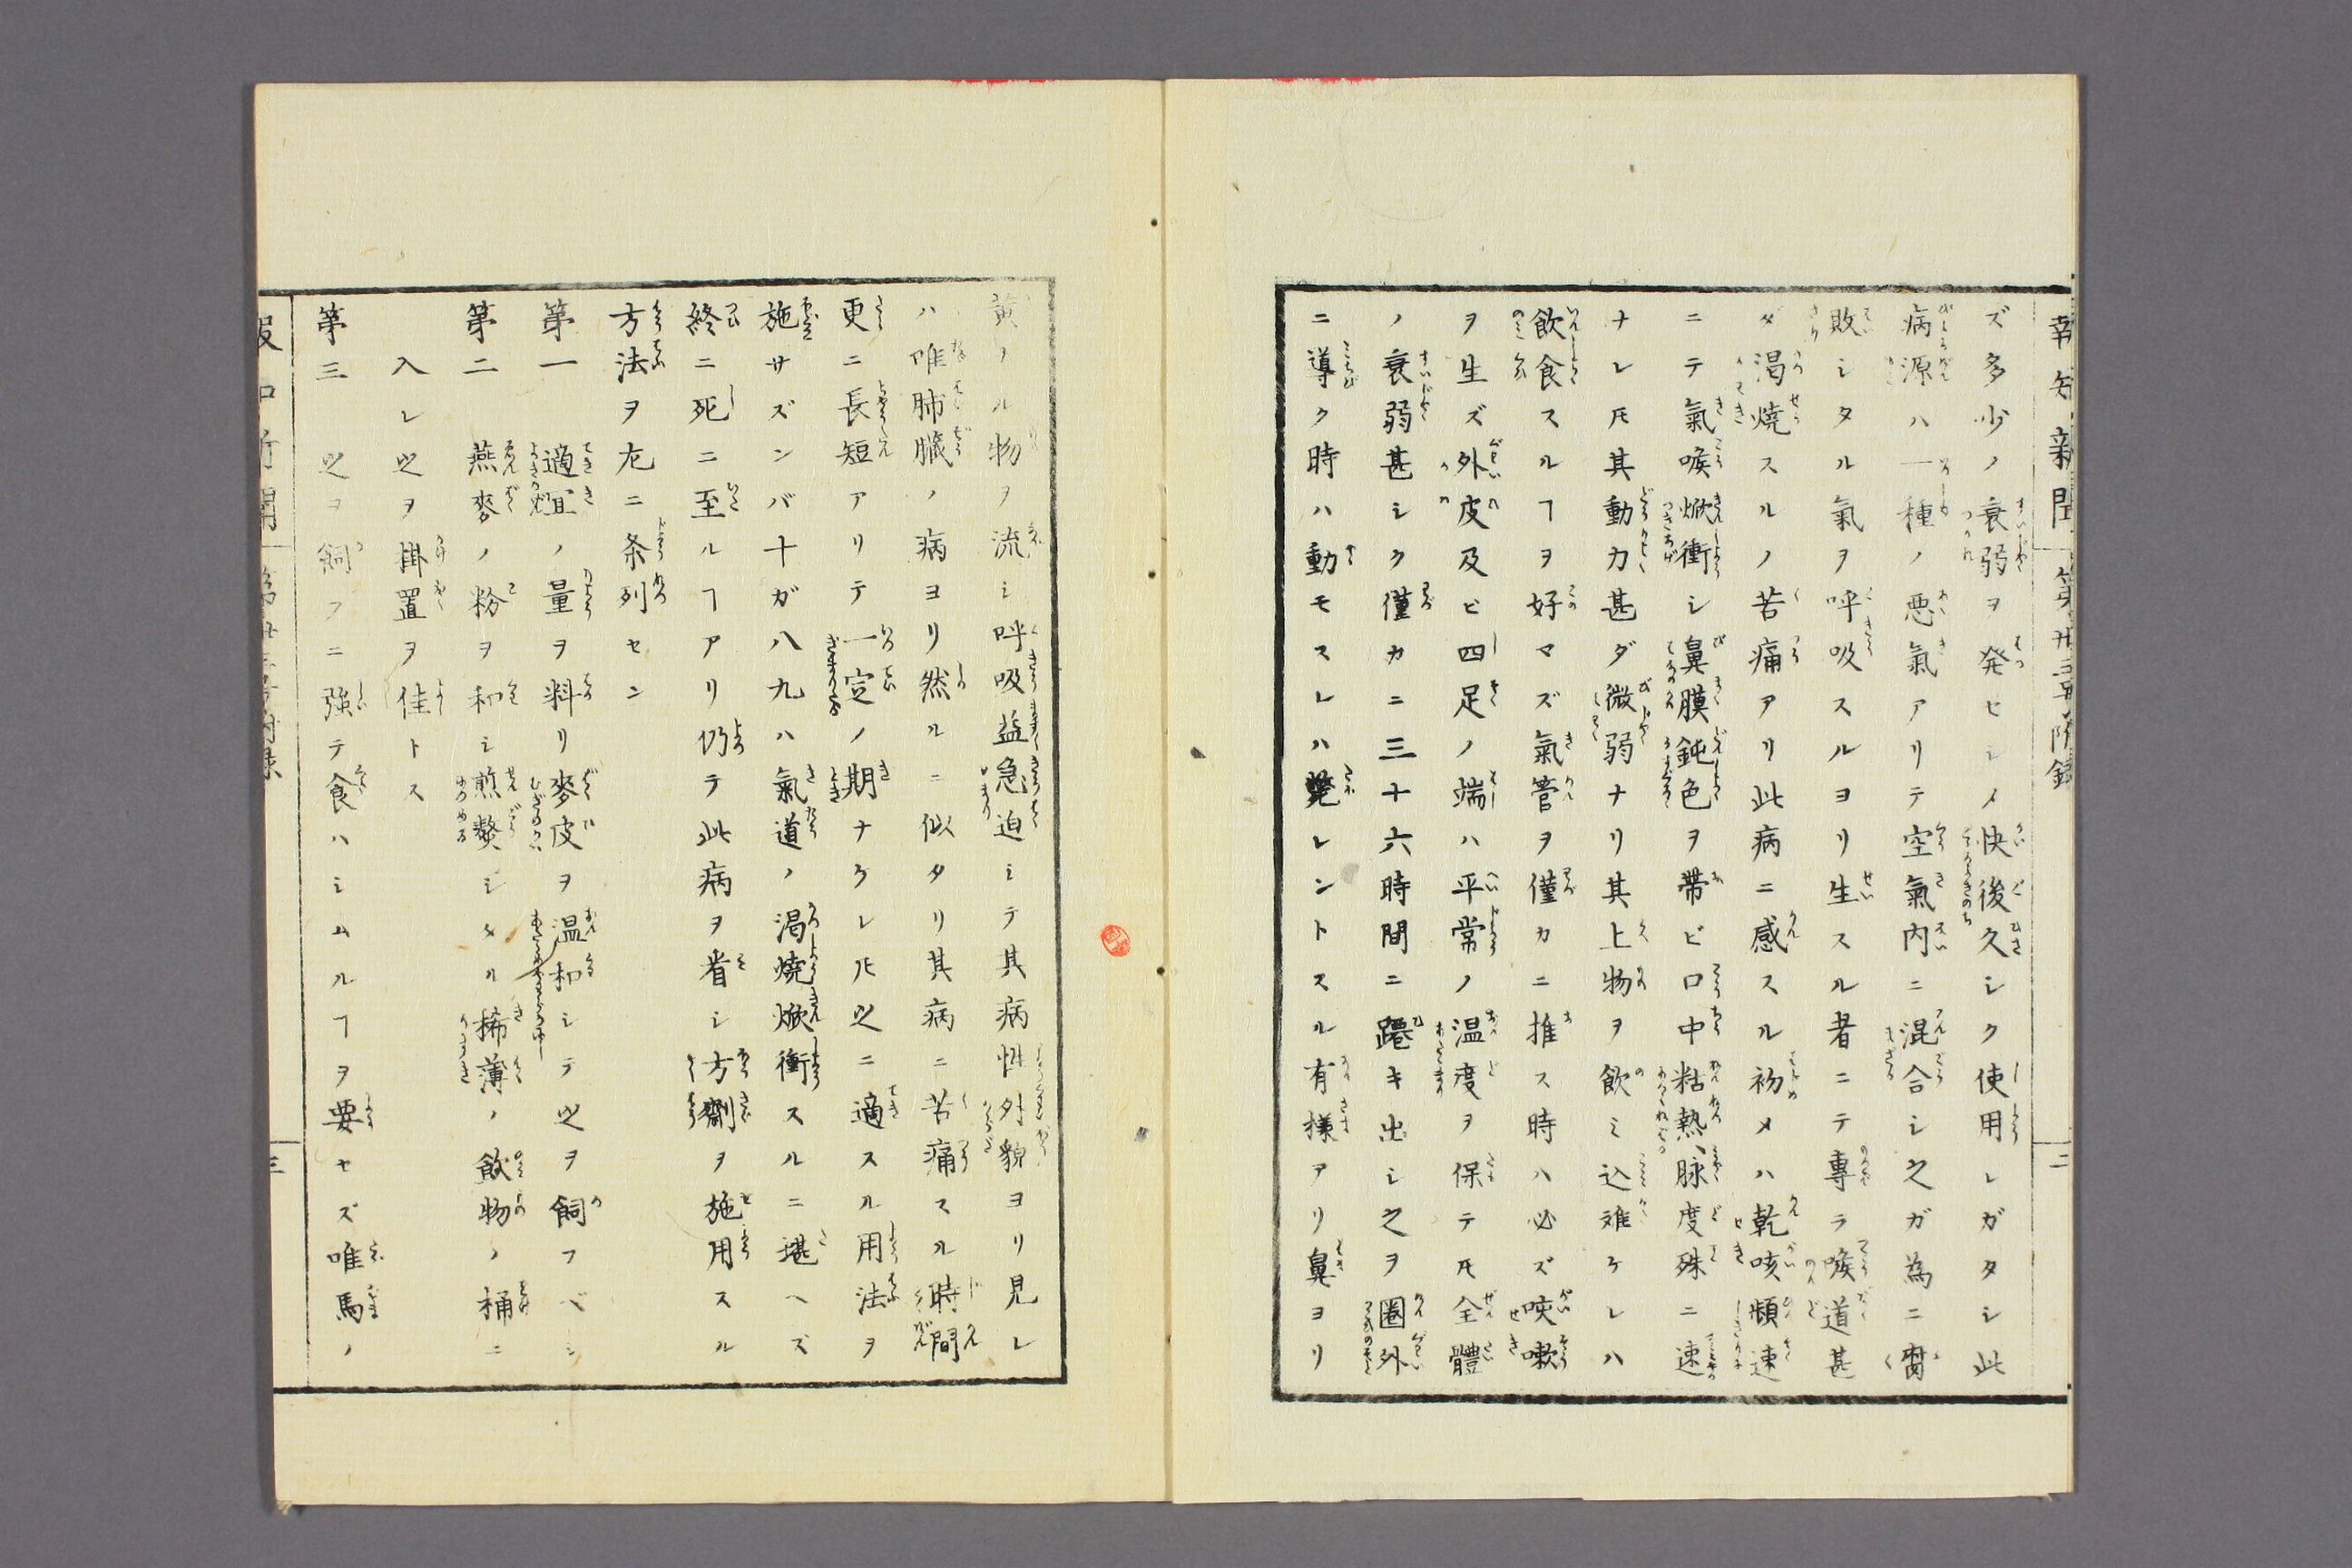 報知新聞 第廿三号附録 二
ズ多少ノ衰弱ヲ発セシメ快後久シク使用シガタシ此
病源ハ一種ノ悪氣アリテ空氣内ニ混合シ之ガ為ニ腐
敗シタル氣ヲ呼吸スルヨリ生スル者ニテ專ラ喉道甚
ダ渇燒スルノ苦痛アリ此病ニ感スル初メハ乾咳頻速
ニテ氣喉焮衝シ鼻膜鈍色ヲ帶ビ口中粘熱、脉度殊ニ速
ナレ𪜈其動力甚ダ微弱ナリ其上物ヲ飲ミ込难ケレハ
飲食スルヿヲ好マズ氣管ヲ僅カニ推ス時ハ必ズ咳嗽
ヲ生ズ外皮及ヒ四足ノ端ハ平常ノ温度ヲ保テ𪜈全體
ノ衰弱甚シク僅カニ三十六時間ニ蹷キ出シ之ヲ圏外
ニ導ク時ハ動モスレハ斃レントスル有様アリ鼻ヨリ
黄ノル物ヲ流シ呼吸益急迫シテ其病性外貌ヨリ見レ
ハ唯肺臓ノ病ヨリ然ルニ似タリ其病ニ苦痛スル時間
更ニ長短アリテ一定ノ期ナケレ𪜈之ニ適スル用法ヲ
施サズンバ十ガ八九ハ氣道ノ渇燒焮衝スルニ堪ヘズ
終ニ死ニ至ルヿアリ仍テ此病ヲ省シ方劑ヲ施用スル
方法ヲ左ニ条列セン
第一 適宜ノ量ヲ料リ麥皮ヲ温和シテ之ヲ飼フベシ
第二 燕麥ノ粉ヲ和シ煎熬シタル稀薄ノ飲物ノ桶ニ
入レ之ヲ掛置ヲ佳トス
第三 之ヲ飼フニ強テ食ハシムルヿヲ要セズ唯馬ノ
報知新聞 第廿三号附録 三